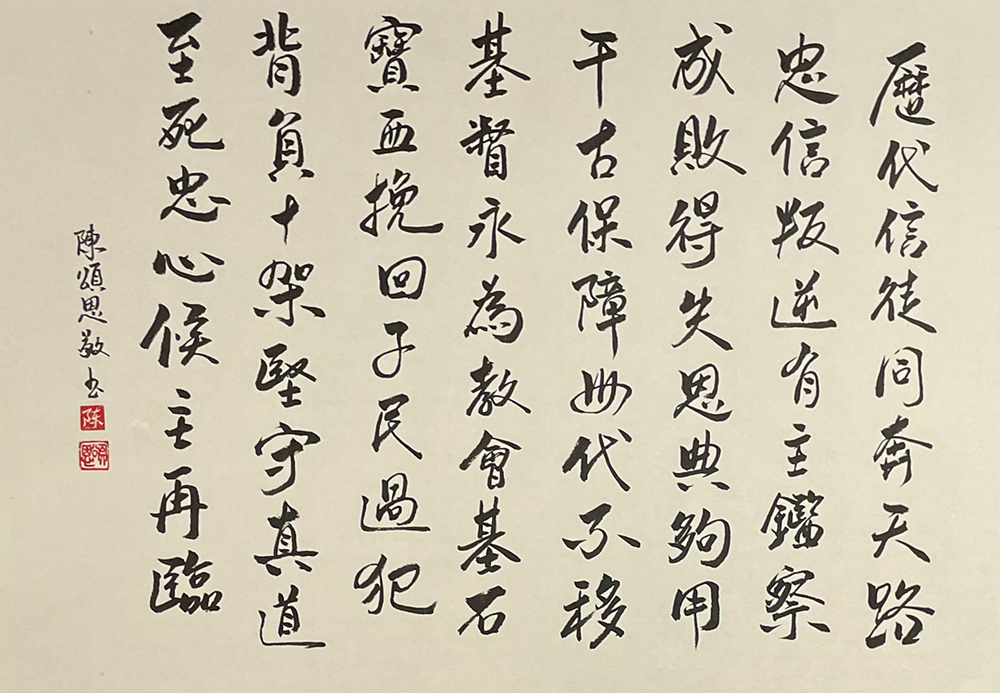 歷代信徒同奔天路
忠信叛逆有主鑑察
成敗得失恩典夠用
千古保障世代不移
基督永為教會基石
寶血挽回子民過犯
背負十架堅守真道
至死忠心候主再臨
陳頌思敬书
陈
頌思